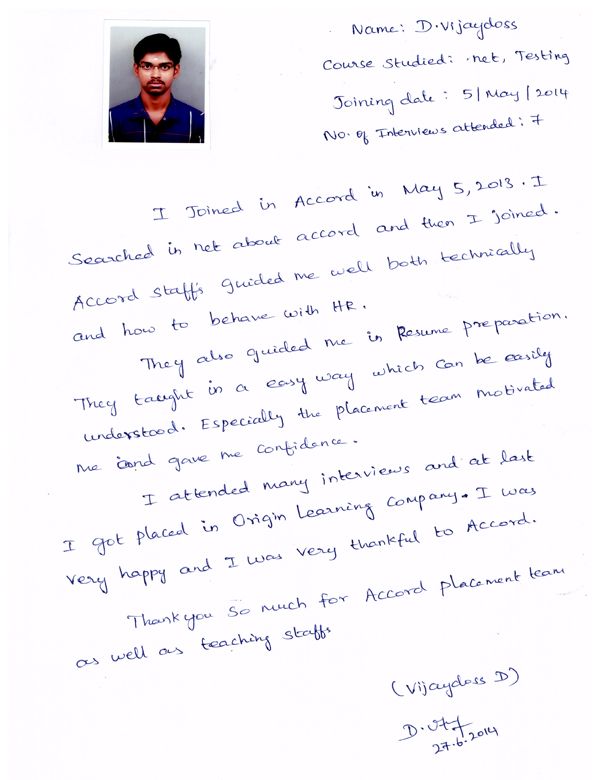 Name: D.Vijaydoss
Course Studied: .net, Testing
Joining date : 5/May/2014
No. of Interviews attended: 7
I Joined in Accord in May 5, 2013. I
Searched in net about accord and then I joined.
Accord Staffs guided me well both technically
and how to behave with HR.
They also guided me in Resume preparation.
They taught in a easy way which can be easily
understood. Especially the placement team motivated
me and gave me confidence.
I attended many interviews and at last
I got placed in Origin Learning Company. I was
very happy and I was very thankful to Accord.
Thankyou so much for Accord placement team
as well as teaching staffs
(Vijaydoss D)
D.
27.6.2014